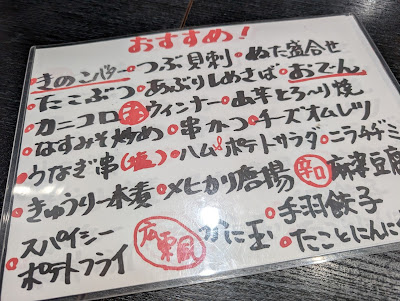 おすすめ!
きのこバター つぶ貝刺 ぬた盛合せ
たこぶつ あぶりしめさば おでん
カニコロ 赤ウィンナー 山芋とろへり焼
なすみそ炒め 串かつ チーズオムレツ
うなぎ串(塩) ハムポテトサラダ ニラチヂミ
きゅうり一本漬 メヒカリ唐揚 辛口麻婆豆腐
スパイシーポテトフライ 広東風かに玉 手羽餃子
たことにんにく